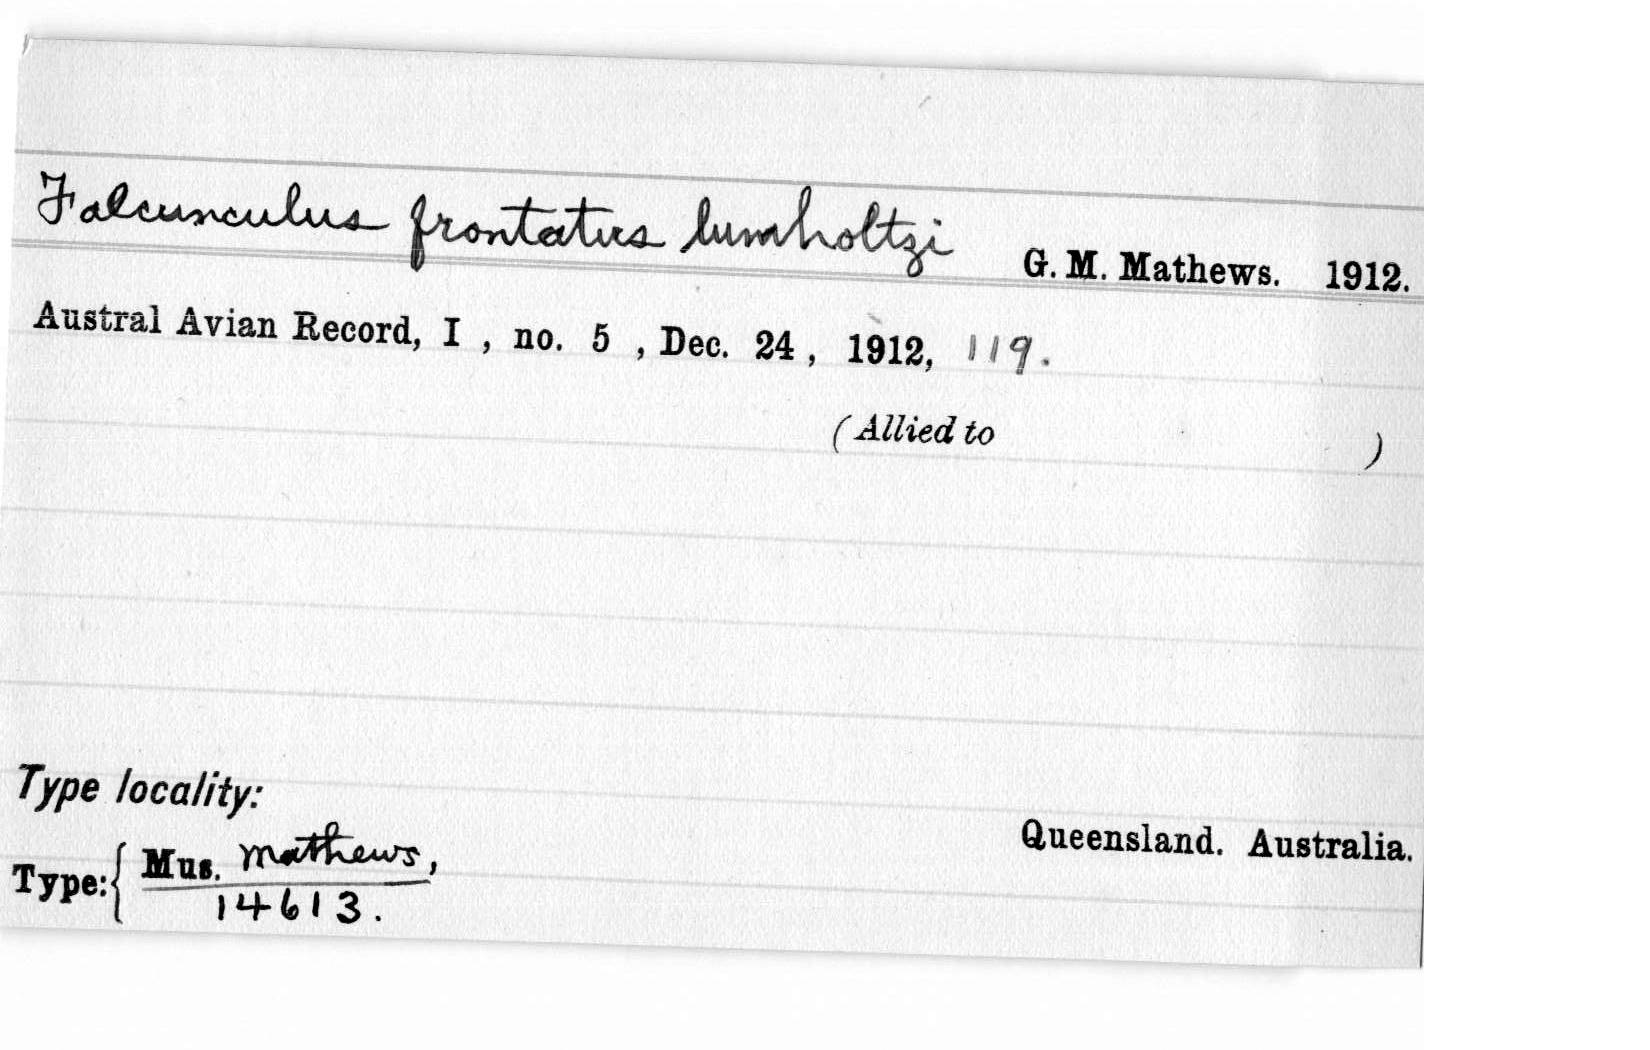 Falcunculus frontatus lumholtzi G. M. Mathews. 1912.
Austral Avian Record, I , no. 5 , Dec. 24 , 1912, 119.
(Allied to )
Type locality:
Queensland. Australia.
Type: { Mus. Mathews,
14613.